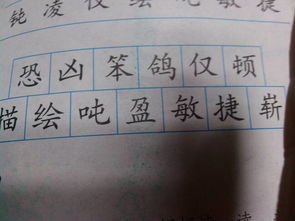 钝凌仅绘吨敏捷
恐凶笨鸽仅顿
描绘吨盈敏捷崭